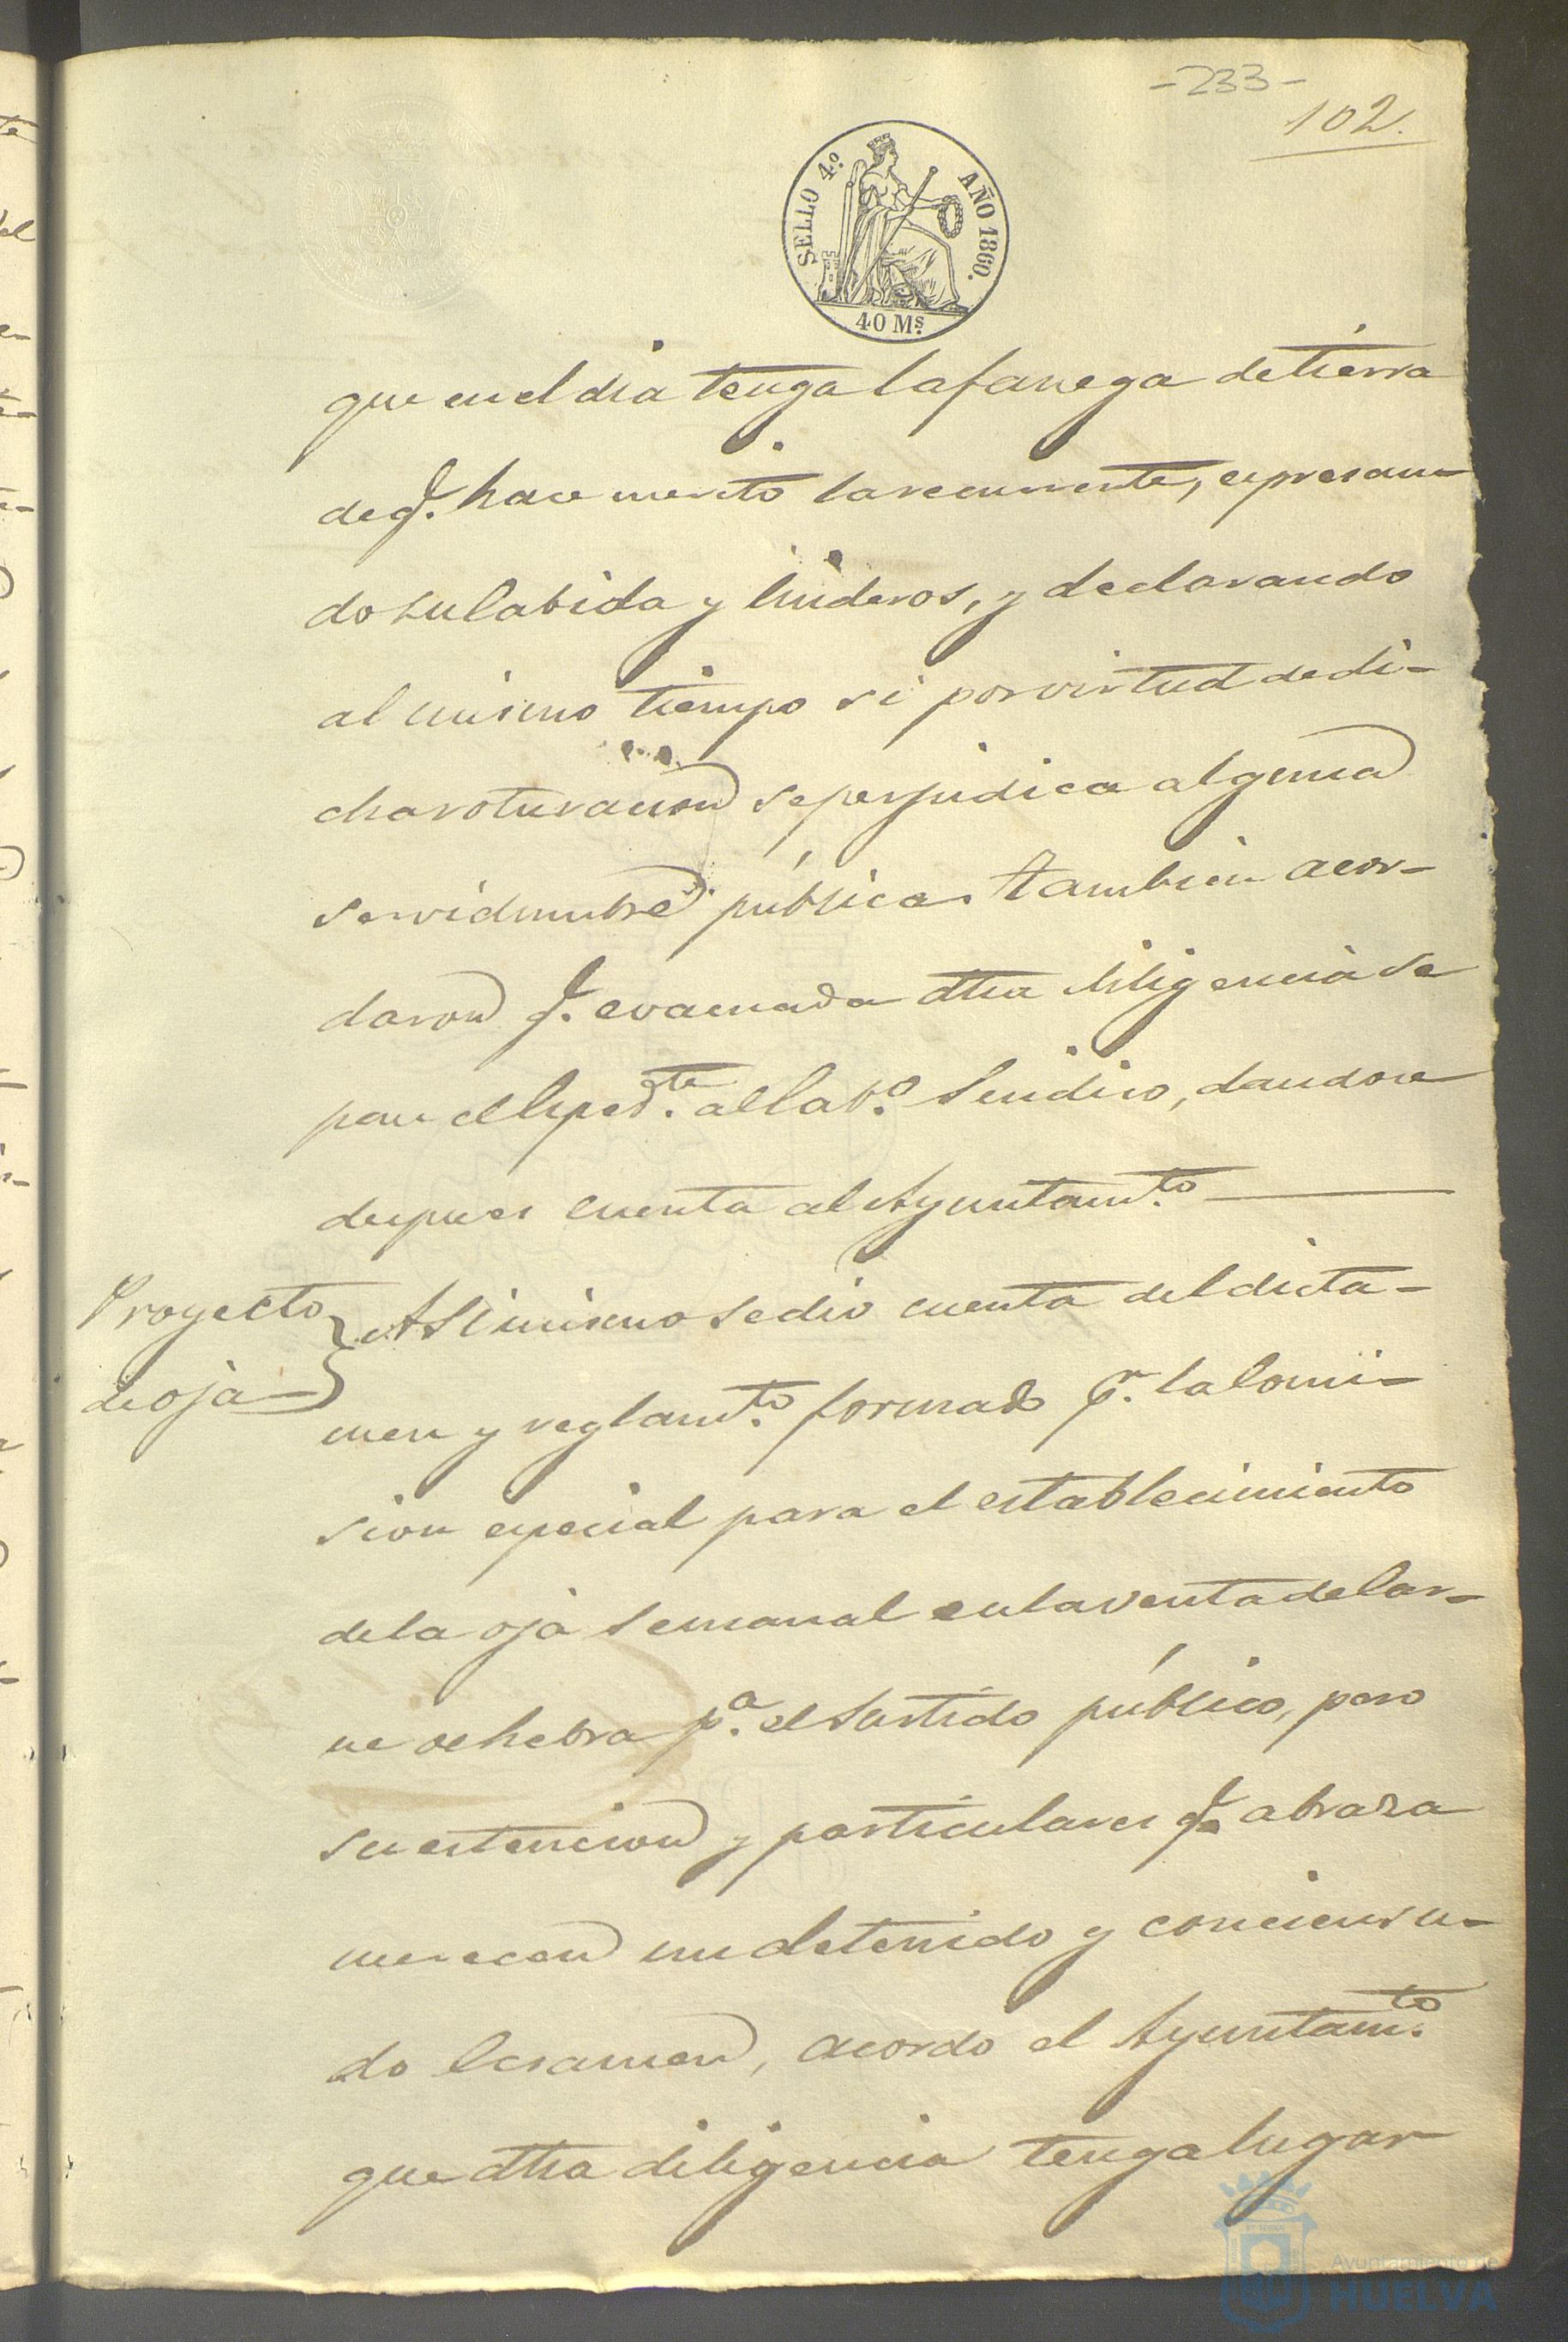 -233-
102.
SELLO 4.º AÑO 1860.
40 Ms.
que en el dia tenga la fanega de tierra
de q.e hace merito la recurrente, expresan-
do su cabida y linderos, y declarando
al mismo tiempo si por virtud de di-
cha roturacion se perjudica alguna
servidumbre pública. Tambien acor-
daron q.e evacuada dha diligencia se
pase el Exped.te al Cab.o Sindico, dandose
despues cuenta al Ayuntam.to
Proyecto
de oja
Asi mismo se dio cuenta del dicta-
men y reglam.to formado p.r la Comi-
sion especial para el establecimiento
de la oja semanal en la venta de la car-
ne de hebra p.a el surtido público, pero
su estencion y particulares q.e abraza
merecen un detenido y concienzu-
do Ecsamen, acordo el Ayuntam.to
que dha diligencia tenga lugar
Ayuntamiento de
HUELVA